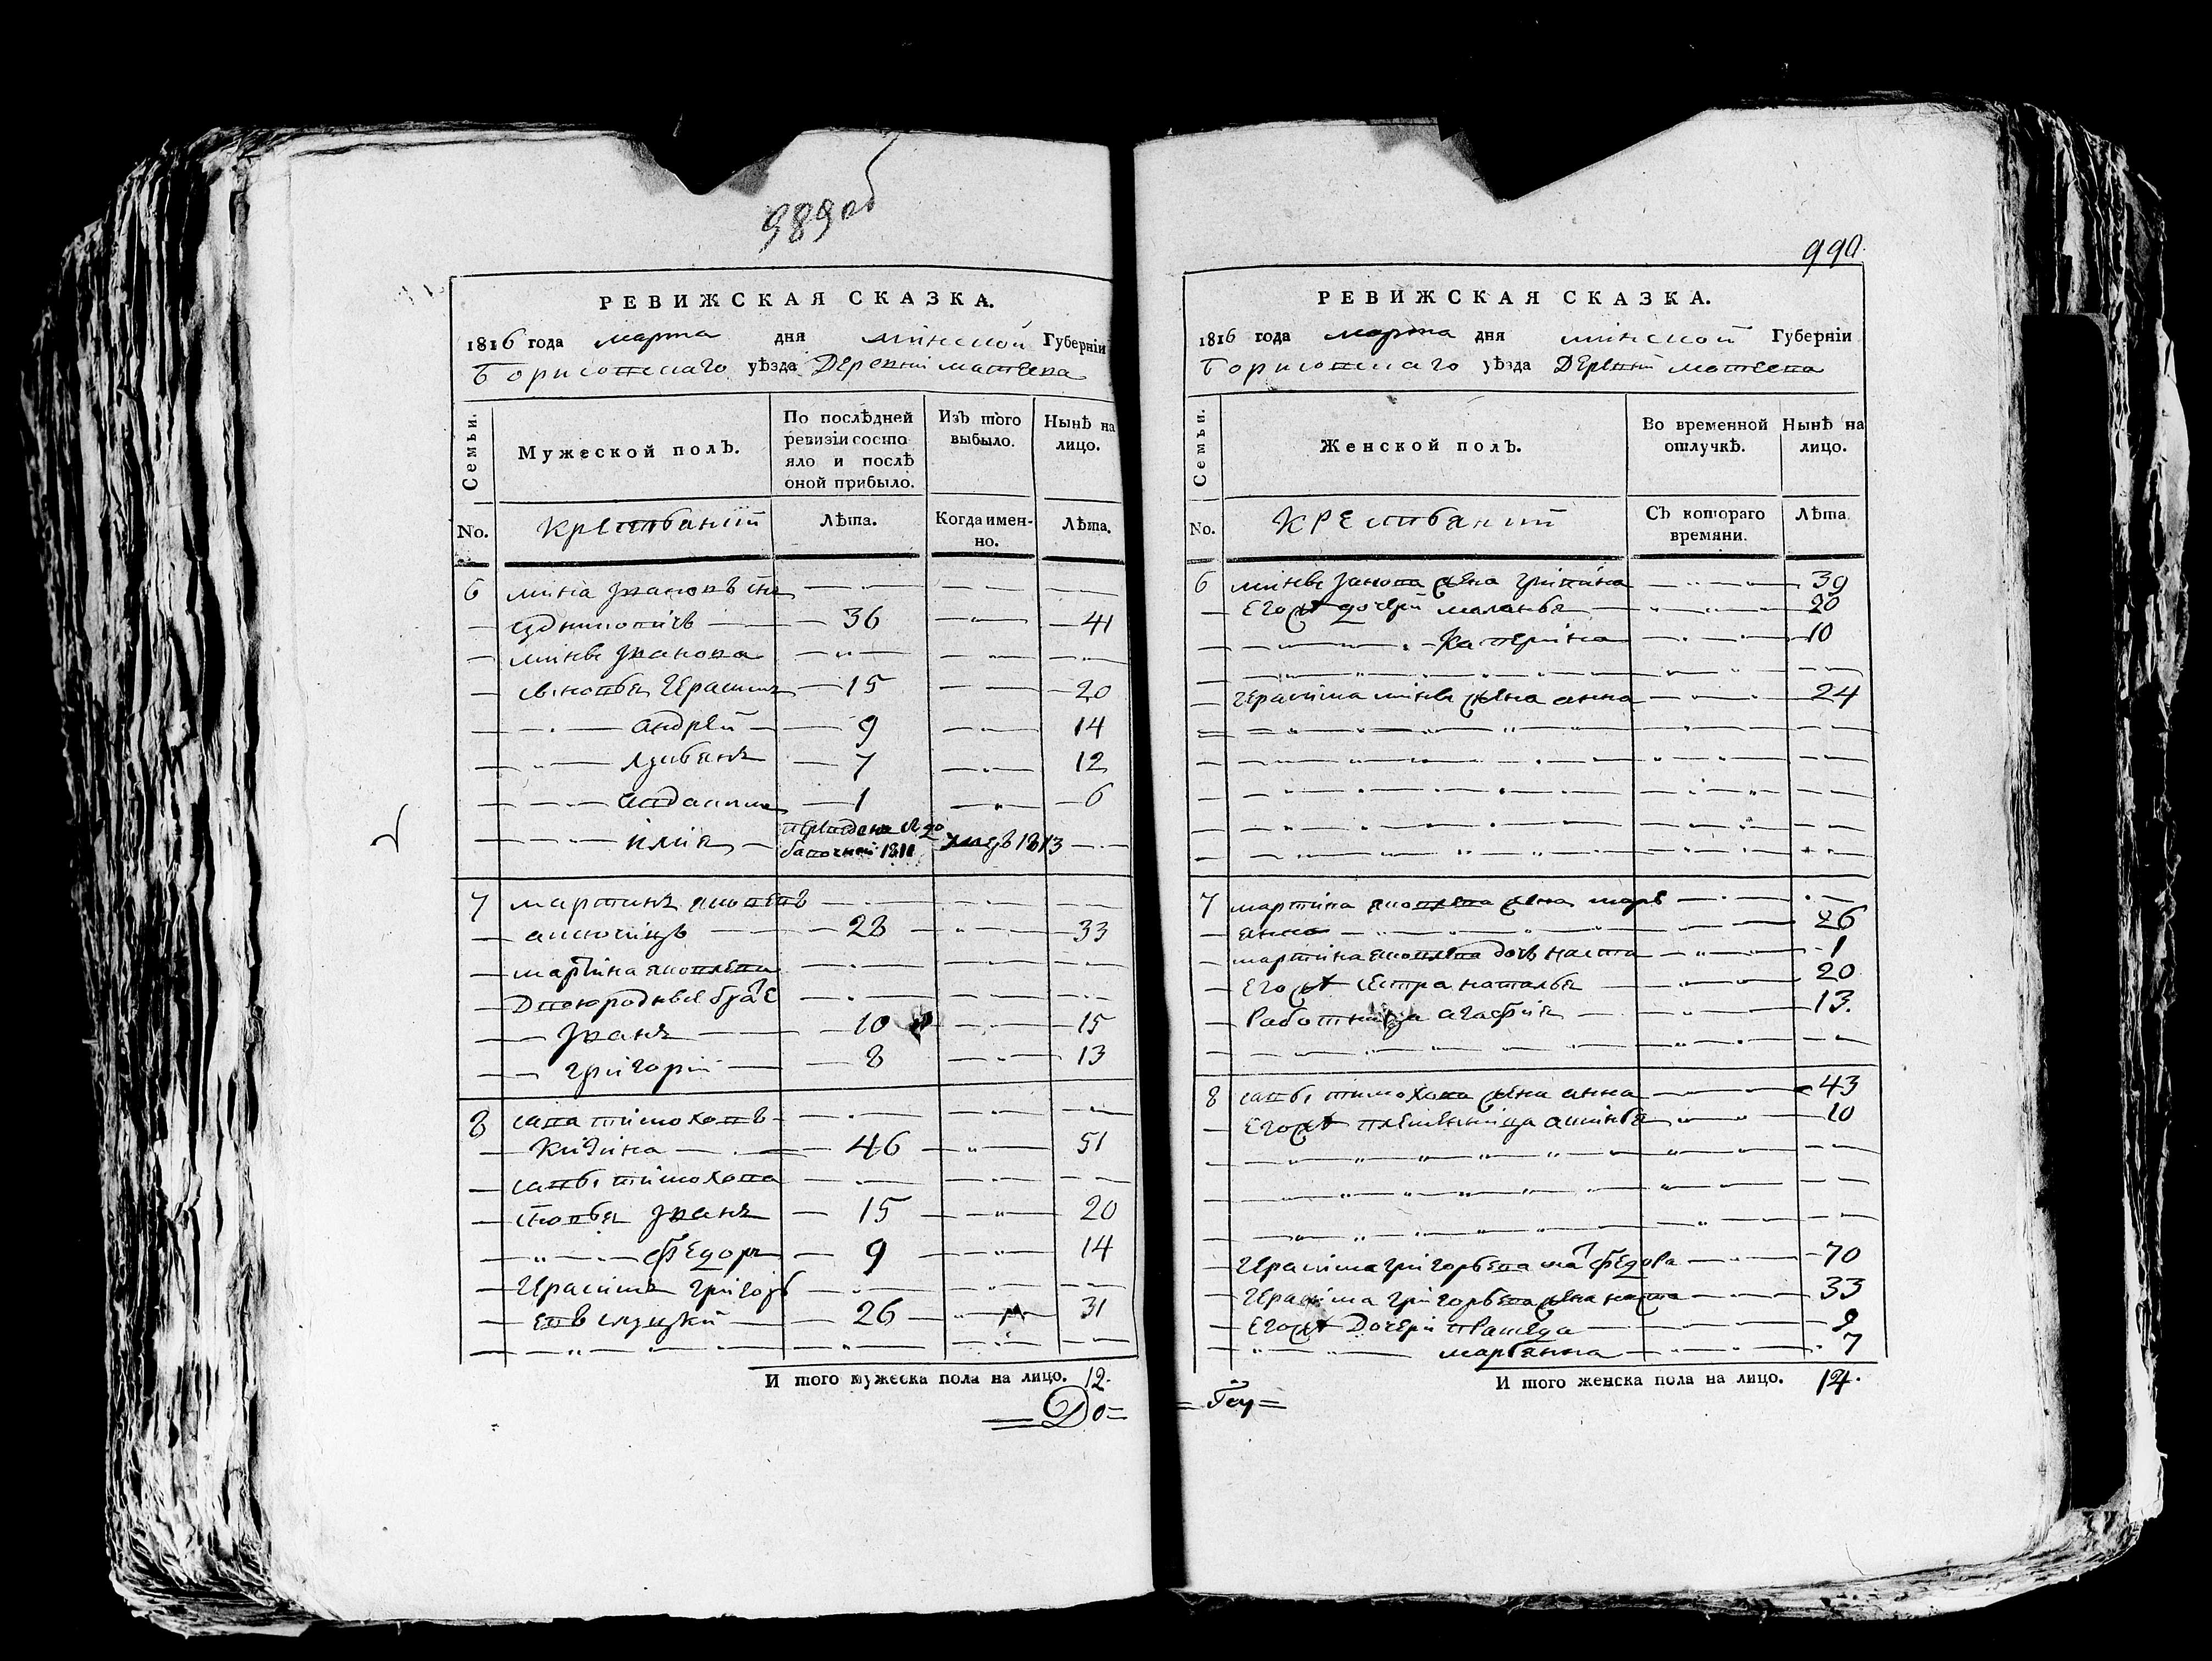 989 об
РЕВИЖСКАЯ СКАЗКА.
1816 года марта дня минской Губернiи
Борисовскаго уѣзда Деревни матеева
Семьи.
Мужеской полъ.
По послѣдней ревизiи состо яло и послѣ оной прибыло.
Изъ того выбыло.
Нынѣ на лицо.
No.
Крестьянiи
Лѣта.
Когда имен-но.
Лѣта.
6 мина Ивановъ
36 41
мины Иванова
сыновья Герасимъ 15 20
андрей 9 14
7 12
1 6
илия 1811 1813
7 мартинъ яковлевъ
28 33
мартина яковлева
Двоюродные братЕ
Иванъ 10 15
григорий 8 13
8 сава тимоховъ
46 51
савы тимохова
сыновья Иванъ 15 20
федоръ 9 14
Герасимъ григорь
евъ слуцкий 26 31
И того мужеска пола на лицо. 12.
=До=
990.
РЕВИЖСКАЯ СКАЗКА.
1816 года марта дня минской Губернiи
Борисовскаго уѣзда Деревни матеева
Семьи.
Женской полъ.
Во временной отлучкѣ.
Нынѣ на лицо.
No.
Крестьянiи
Съ котораго времяни.
Лѣта.
6 мины Иванова жена грипина 39
Егожъ дочери маланья 20
Катерина 10
Герасима мины жена анна 24
7 мартина яковлева жена марь
анна 26
мартина яковлева дочь наста 1
Егожъ сестра наталья 20
Работница агафия 13.
8 савы тимохова жена анна 43
Егожъ племенница аксинья 10
Герасима григорьева мать федора 70
Герасима григорьева жена наста 33
Егожъ Дочери 9
марьянна 7
И того женска пола на лицо. 14.